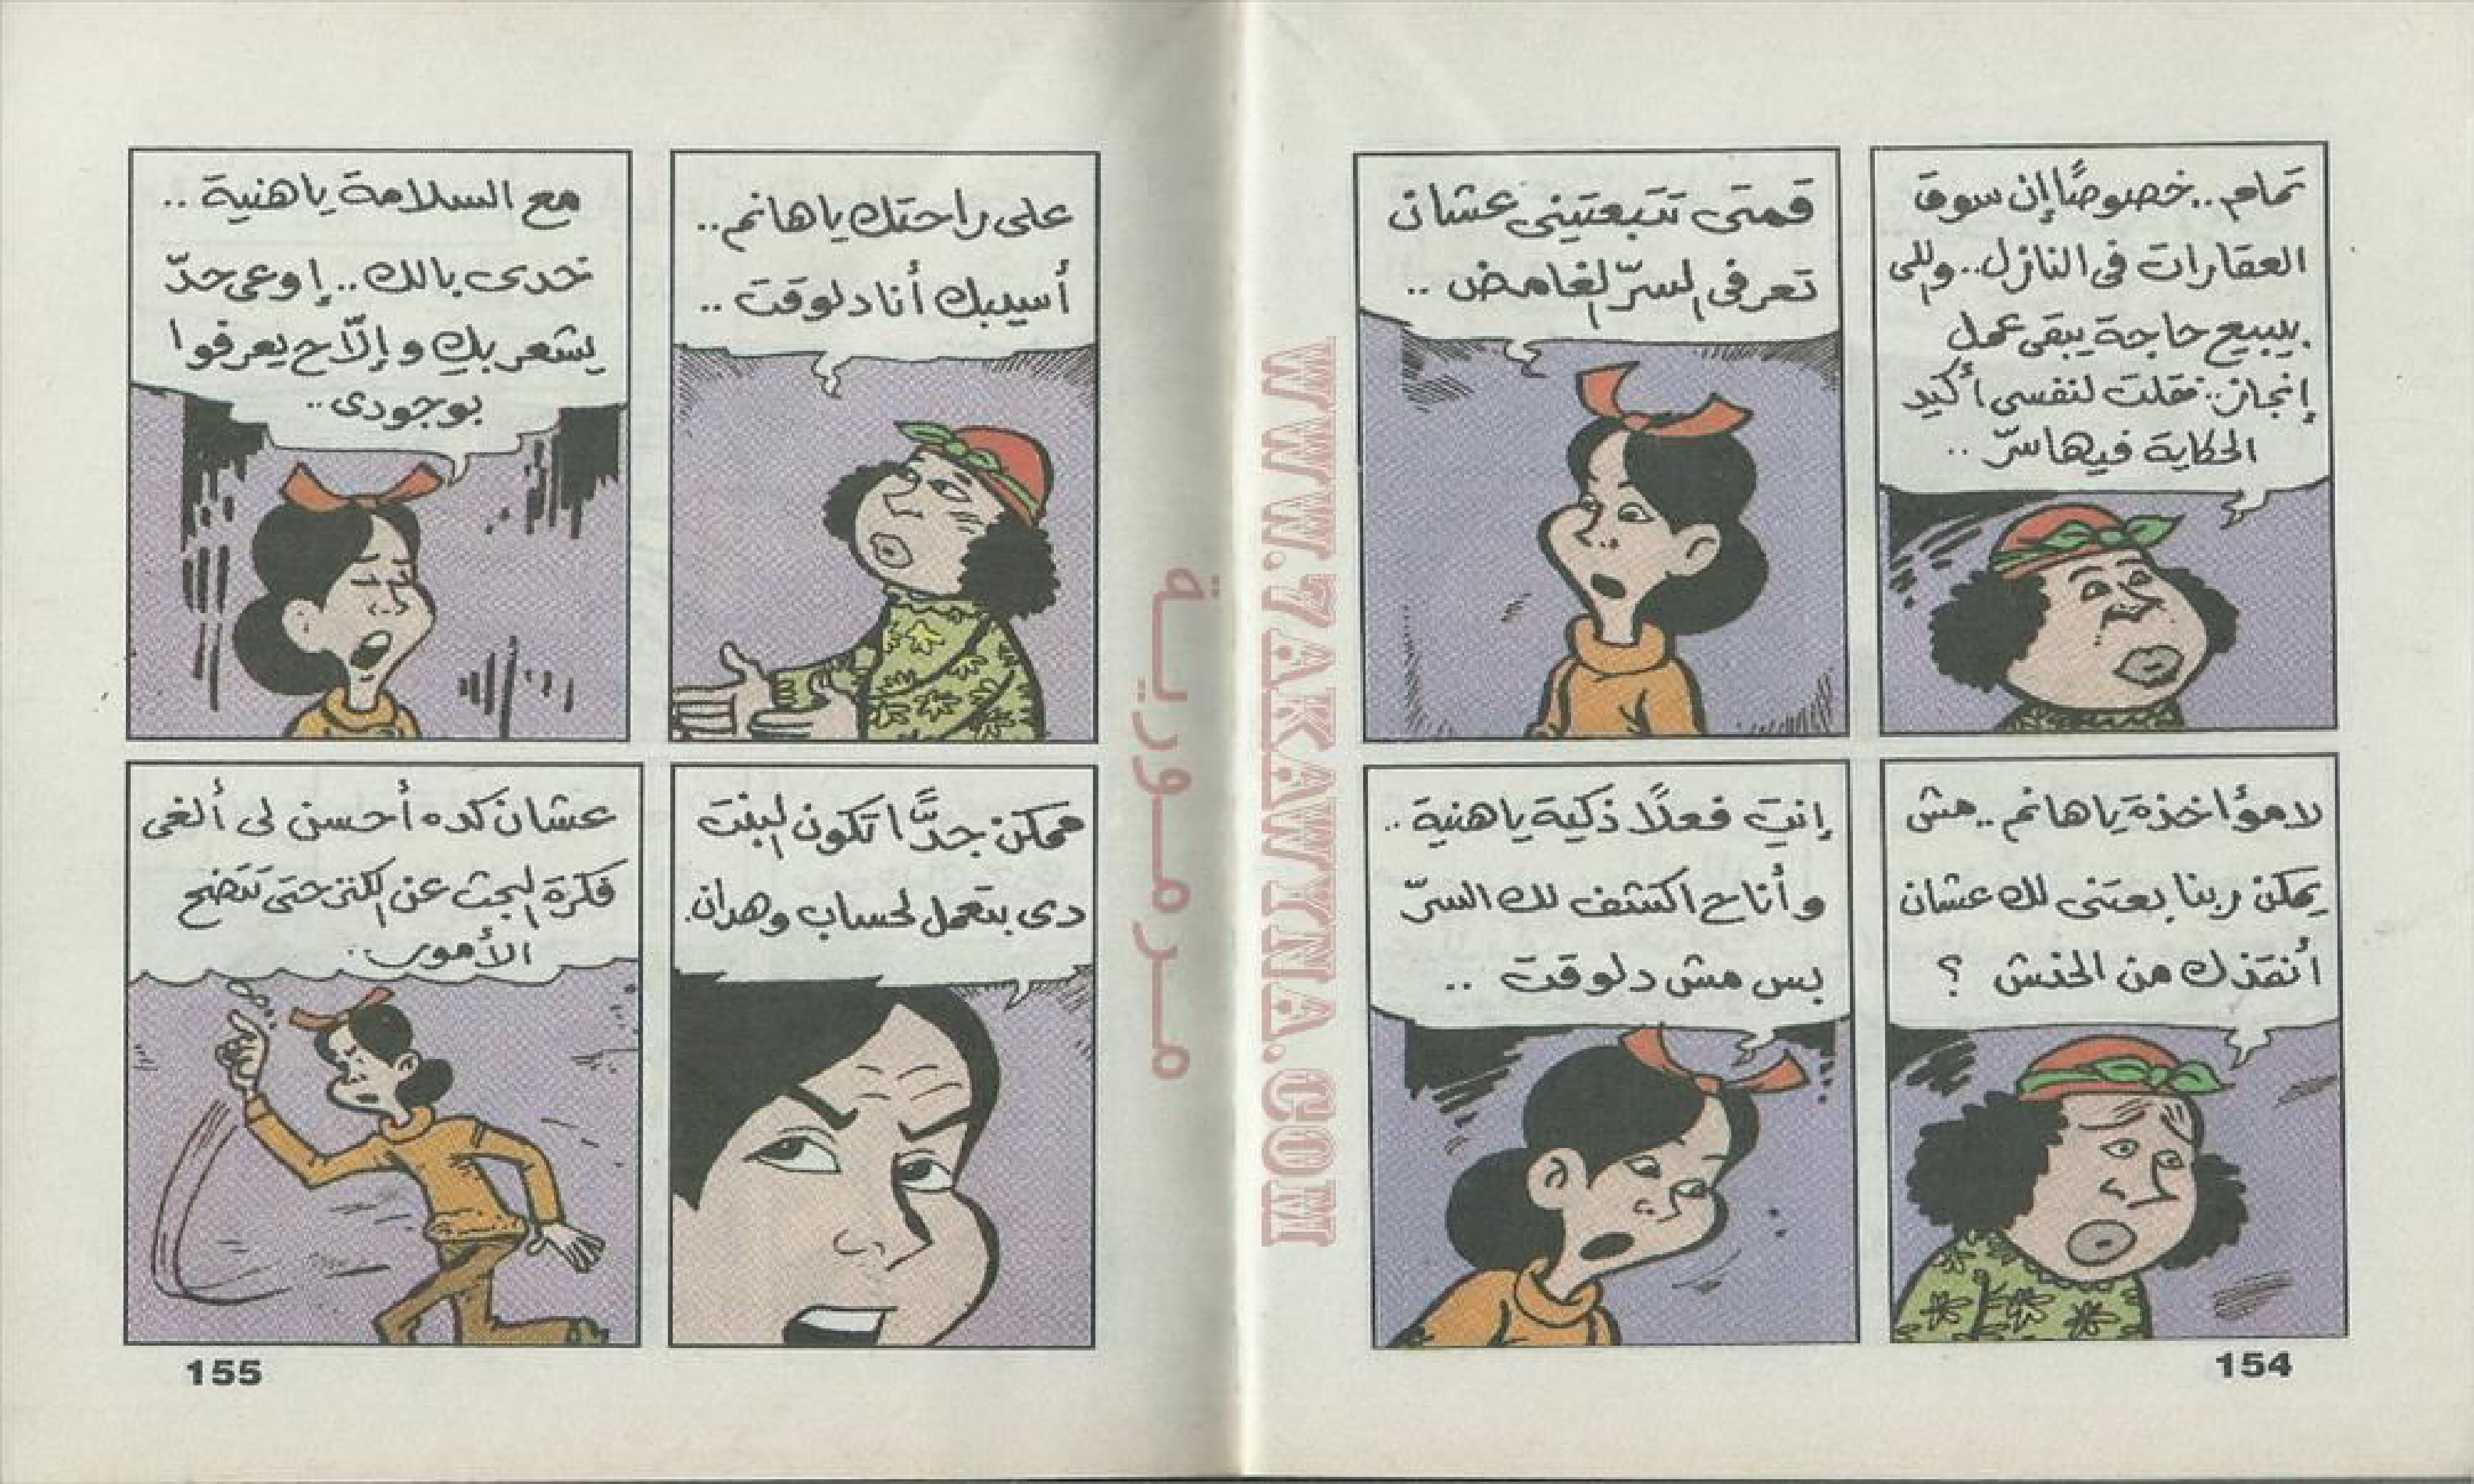 تمام.. خصوصًا إن سوق
العقارات فى النازل.. واللى
بيبيع حاجة يبقى عمل
إنجاز.. فقلت لنفسى أكيد
الحكاية فيها سرّ ..
قمتى تتبعتينى عشان
تعرفى السرّ الغامض ..
لا مؤاخذة يا هانم .. مش
يمكن ربنا بعتنى لك عشان
أنقذك من الخنش ؟
إنتِ فعلًا ذكية يا هنية ..
وأنا ح اكتشف لك السرّ
بس مش دلوقت ..
154
على راحتك يا هانم ..
أسيبك أنا دلوقت ..
مع السلامة يا هنية ..
خدى بالك .. إوعى حدّ
يشعر بكِ وإلّا ح يعرفوا
بوجودى ..
ممكن جدًّا تكون البنت
دى بتعمل لحساب وهدان.
عشان كده أحسن لى ألغى
فكرة البحث عن الكنز حتى تتضح
الأمور ..
155
مرمورية
WWW.7AKAWYNA.COM